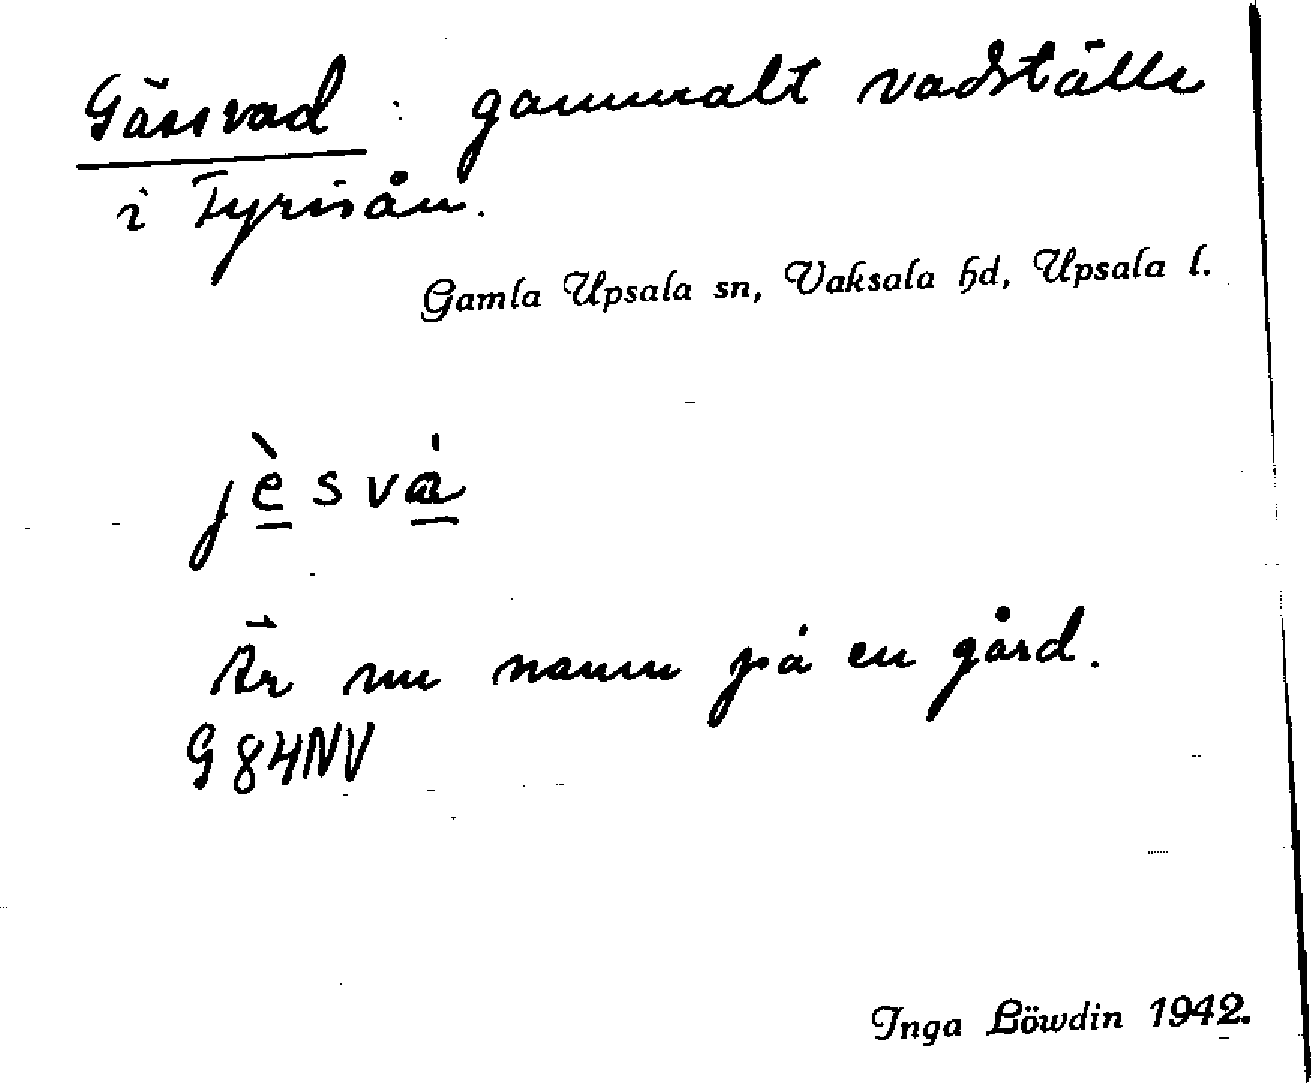 Gässvad : gammalt vadställe
i Tyrisån.
Gamla Upsala sn, Vaksala hd, Upsala l.
jè̲svá̲
Är nu namn på en gård.
G 84NV
Inga Löwdin 1942.